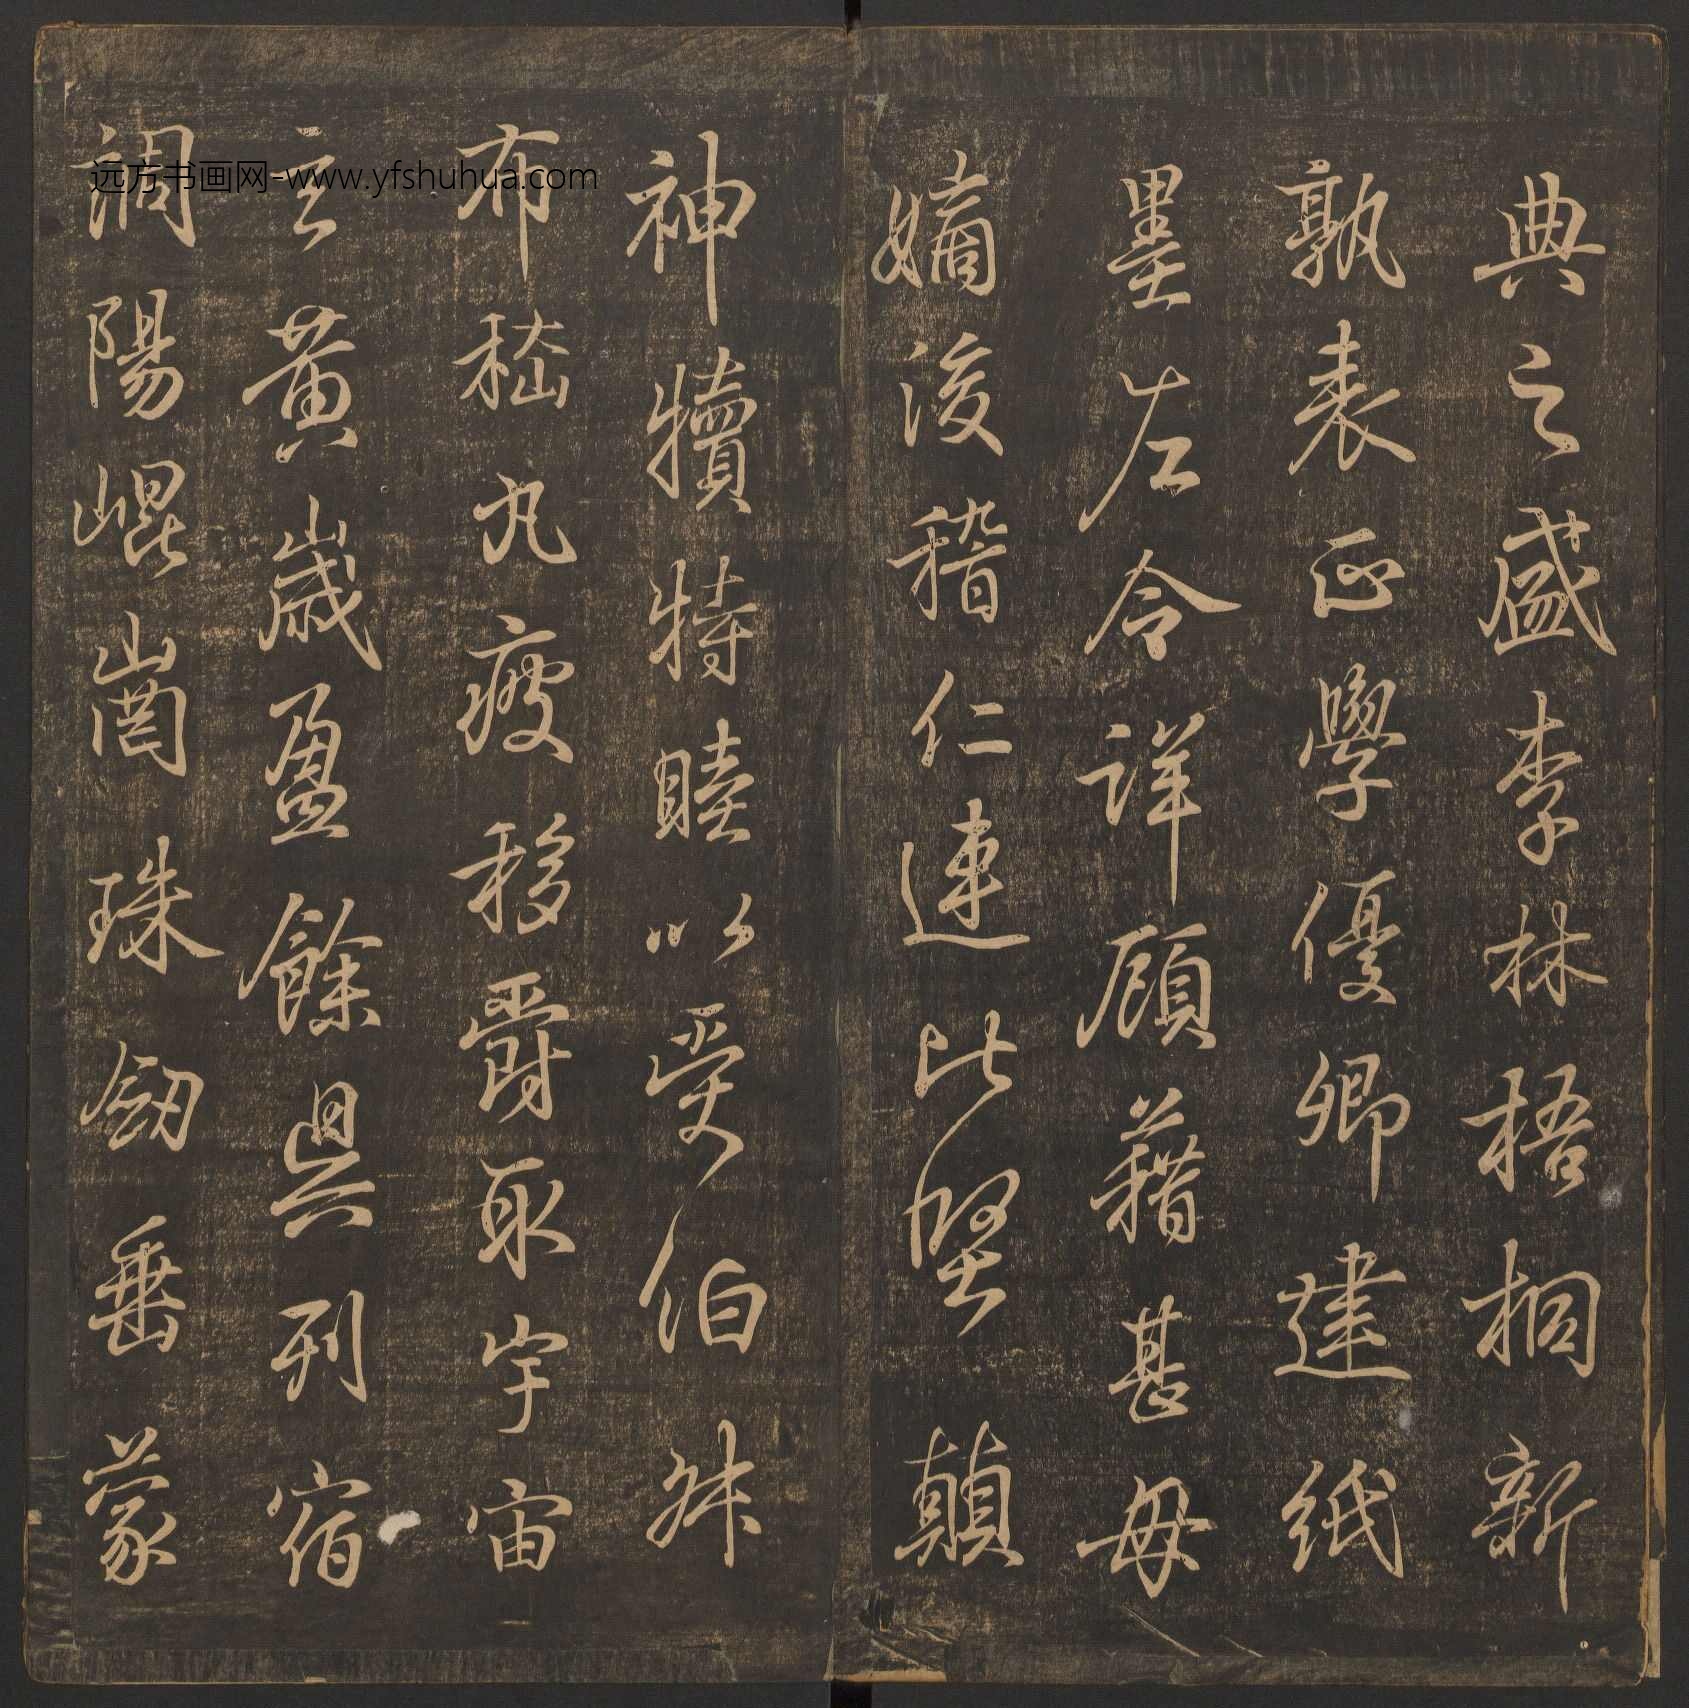 典之盛李林梧桐新
孰表正學優卿建紙
墨左令詳顧藉甚毋
嫡後稽仁連比堅顛
神犢特睦以受伯叔
布嵇丸疲移爵取宇宙
玄黃歲盈餘具列宿
調陽崐崗珠劒垂蒙
远方书画网-www.yfshuhua.com